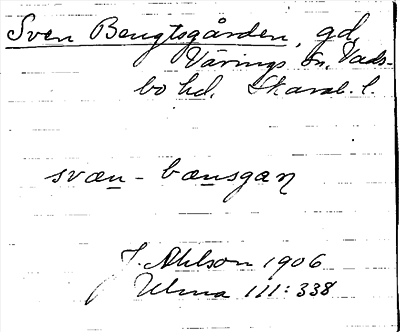 Sven Bengtsgården, gd,
Värings sn, Vads-
bo hd. Skarab. l.
svæn - bænsgaɳ
J. Ahlson 1906
Ulma 111:338